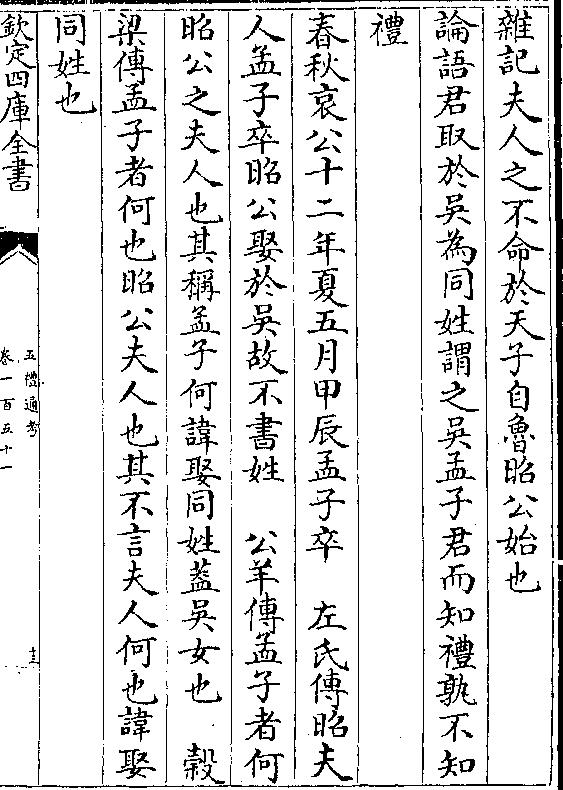 雜記夫人之不命於天子自魯昭公始也
論語君取於吳為同姓謂之吳孟子君而知禮孰不知
禮
春秋哀公十二年夏五月甲辰孟子卒　左氏傳昭夫
人孟子卒昭公娶於吳故不書姓　公羊傳孟子者何
昭公之夫人也其稱孟子何諱娶同姓蓋吳女也　穀
梁傳孟子者何也昭公夫人也其不言夫人何也諱娶
同姓也
欽定四庫全書
五禮通考
卷一百五十一
十三